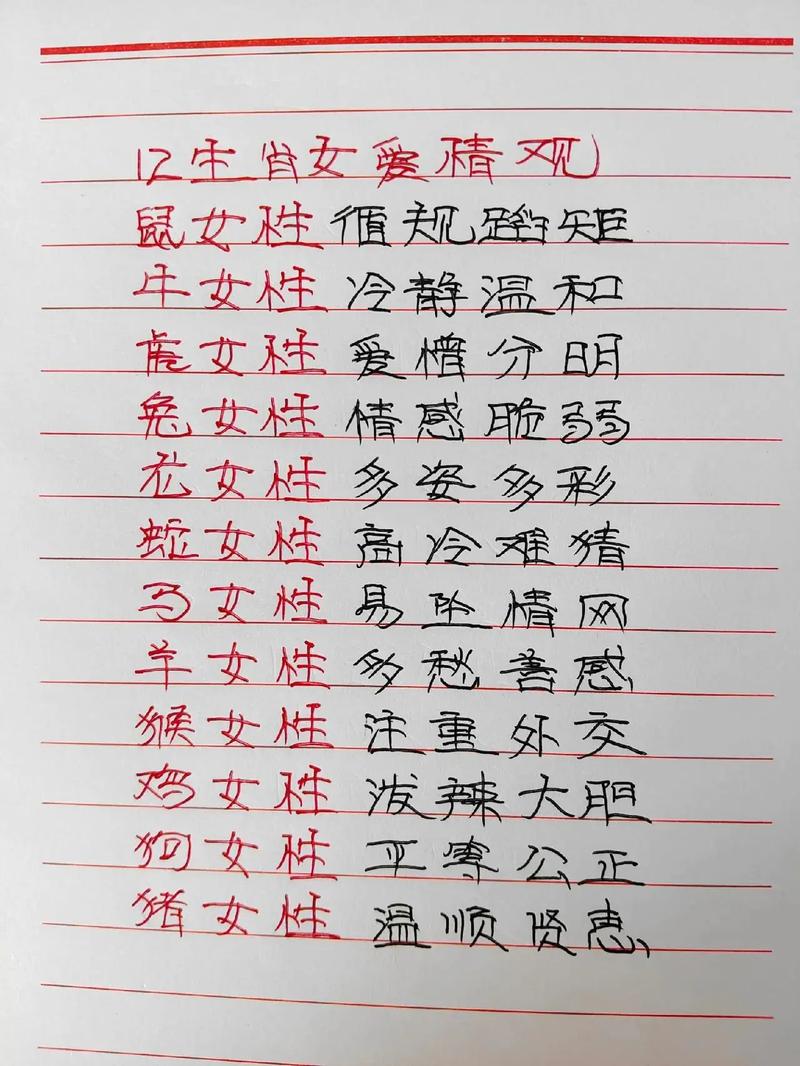 12生肖女爱情观
鼠女性 循规蹈矩
牛女性 冷静温和
虎女性 爱憎分明
兔女性 情感脆弱
龙女性 多姿多彩
蛇女性 高冷难猜
马女性 易坠情网
羊女性 多愁善感
猴女性 注重外交
鸡女性 泼辣大胆
狗女性 平等公正
猪女性 温顺贤惠